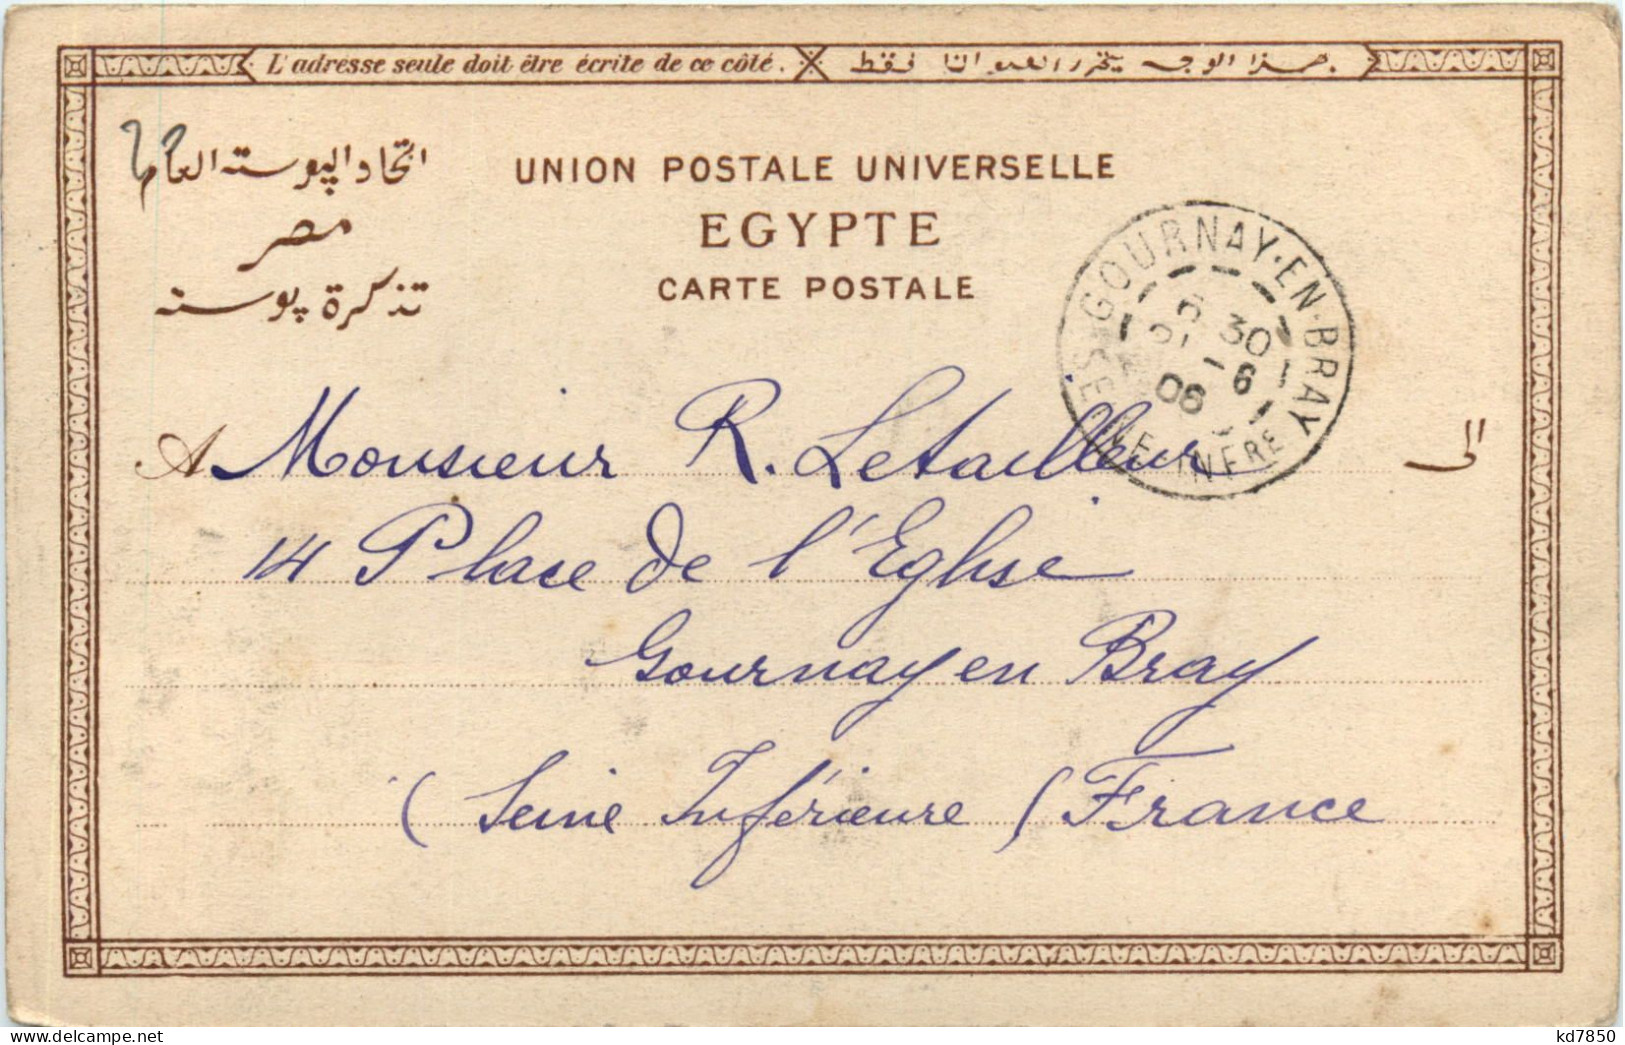 L'adresse seule doit être écrite de ce côté. هذا الوجه يتحرر العنوان فقط.
اتحاد الپوسته العام
UNION POSTALE UNIVERSELLE
مصر
EGYPTE
تذكرة پوسته
CARTE POSTALE
GOURNAY-EN-BRAY
30
-6
06
INFRE
A Monsieur R. Letailleur الى
14 Place de l'Eglise
Gournay en Bray
(Seine Inférieure) France
delcampe.net
kd7850